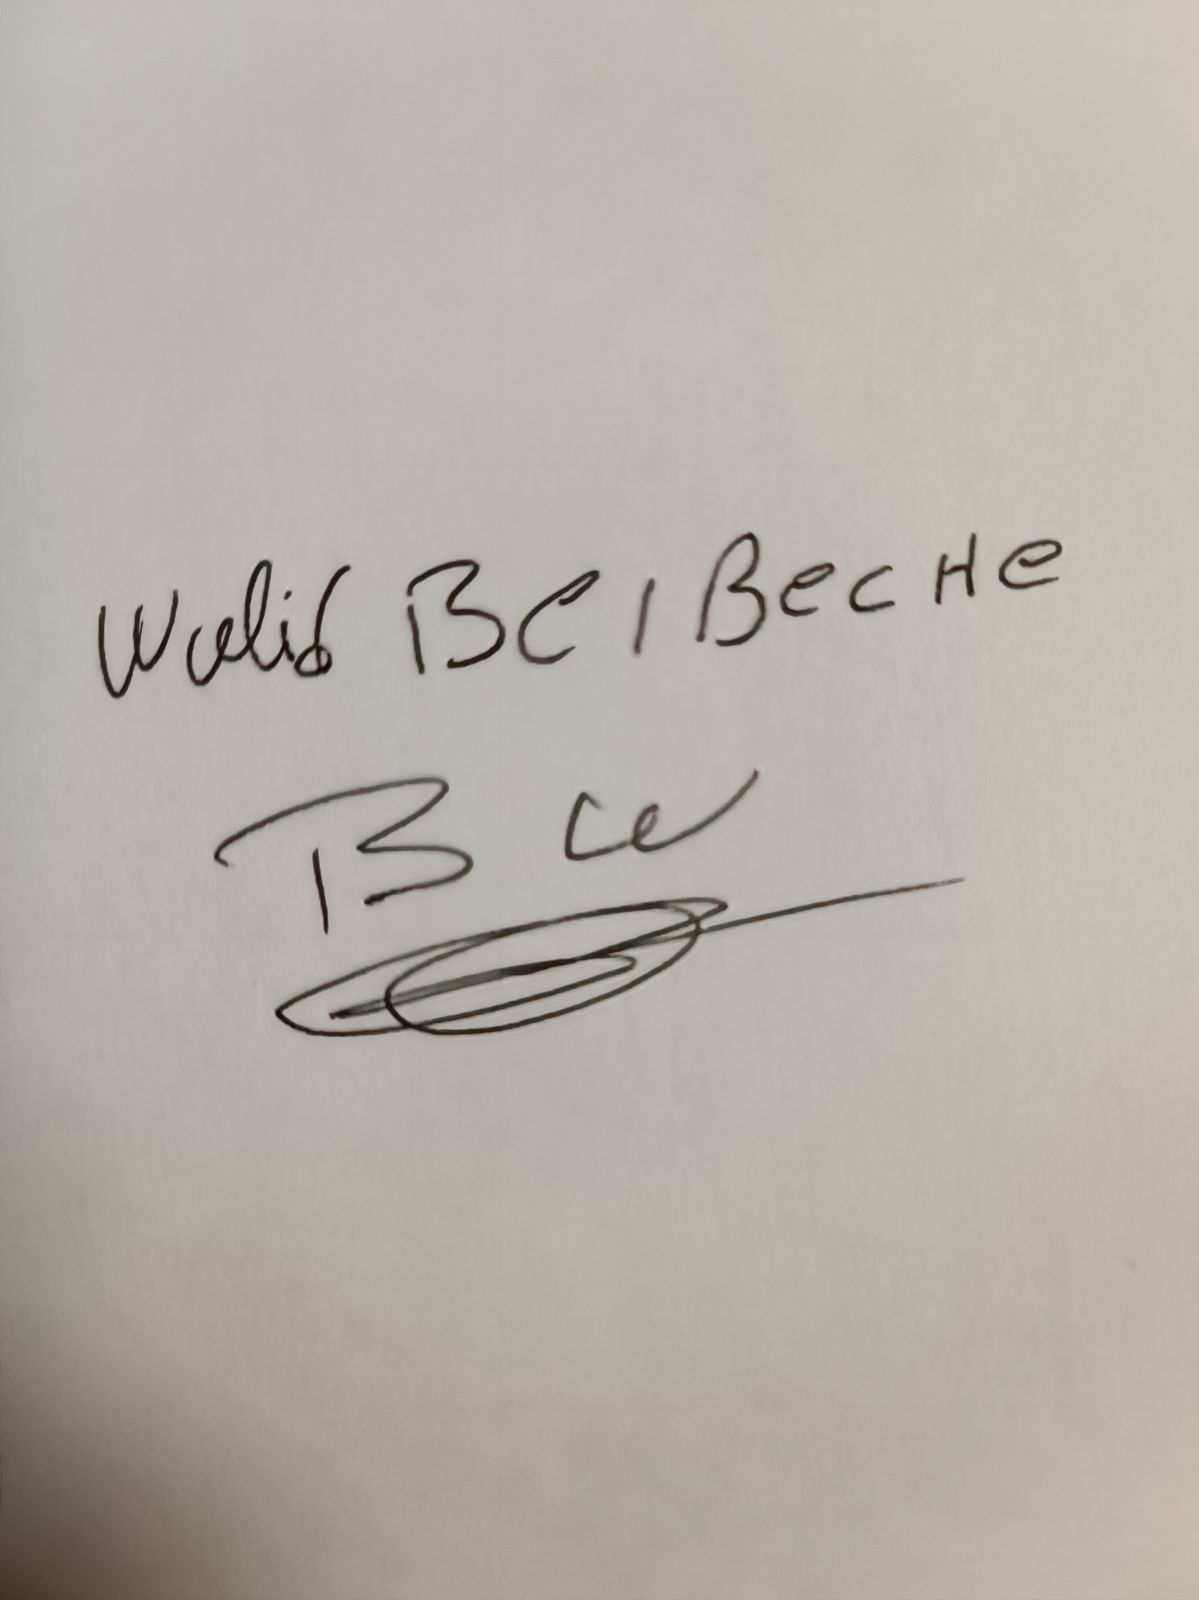 Walid BelBeCHe